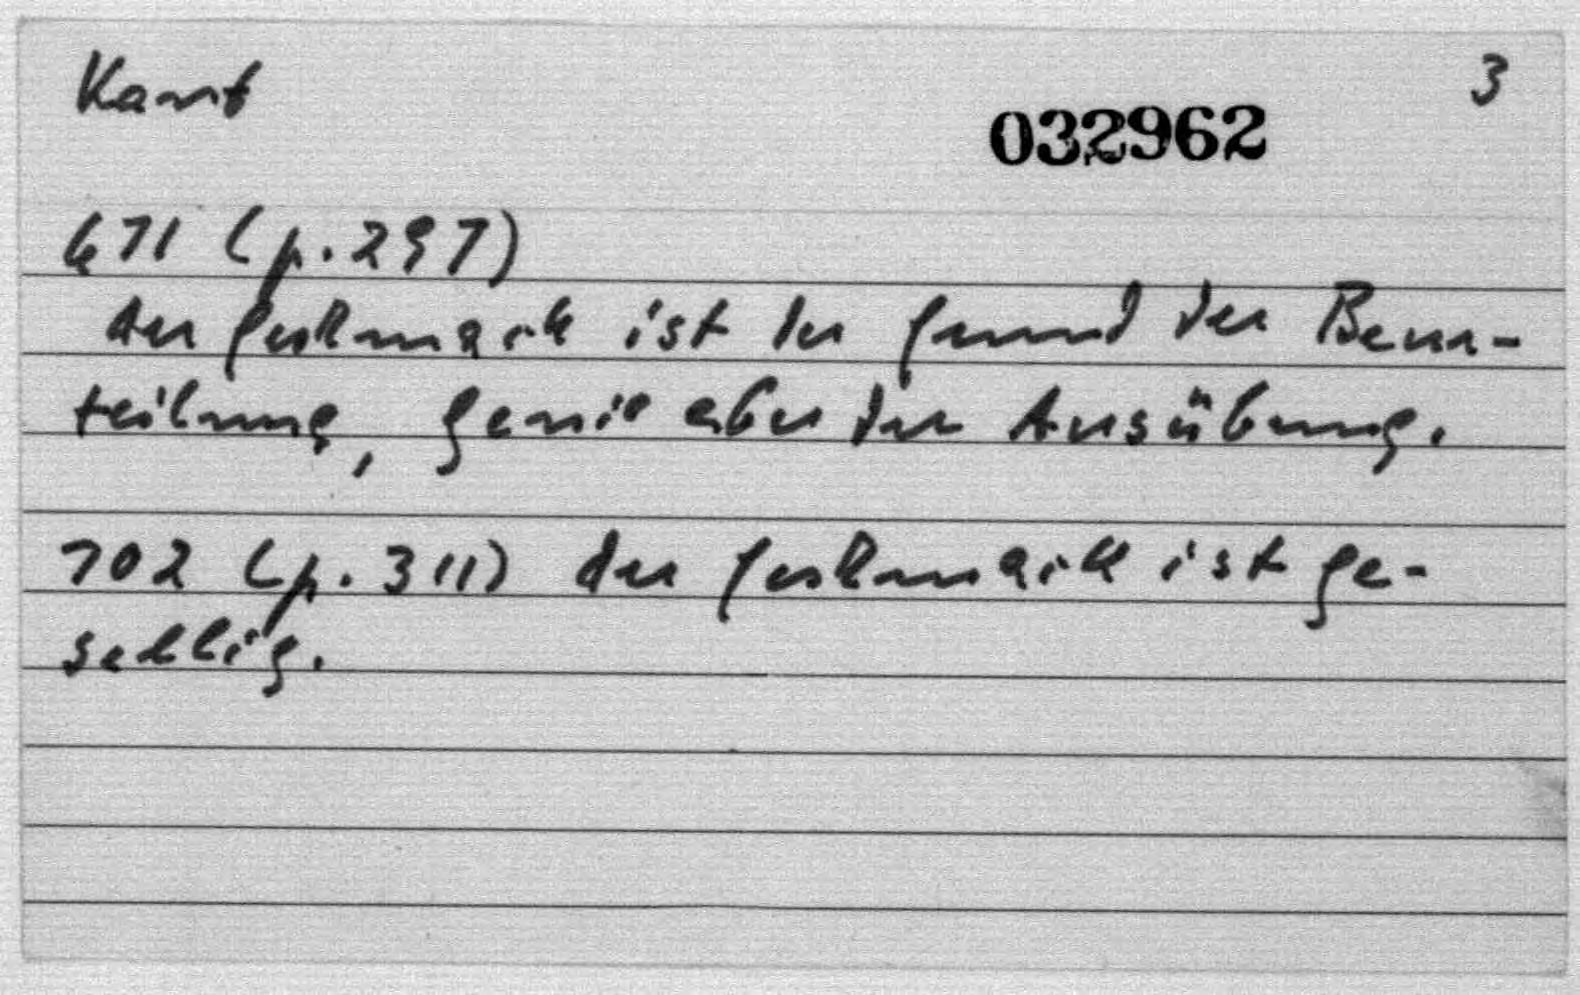 Kant
3
032962
671 (p. 297)
der Geschmack ist der Grund der Beur-
teilung, Genie aber der Ausübung.
702 (p. 311) der Geschmack ist ge-
sellig.